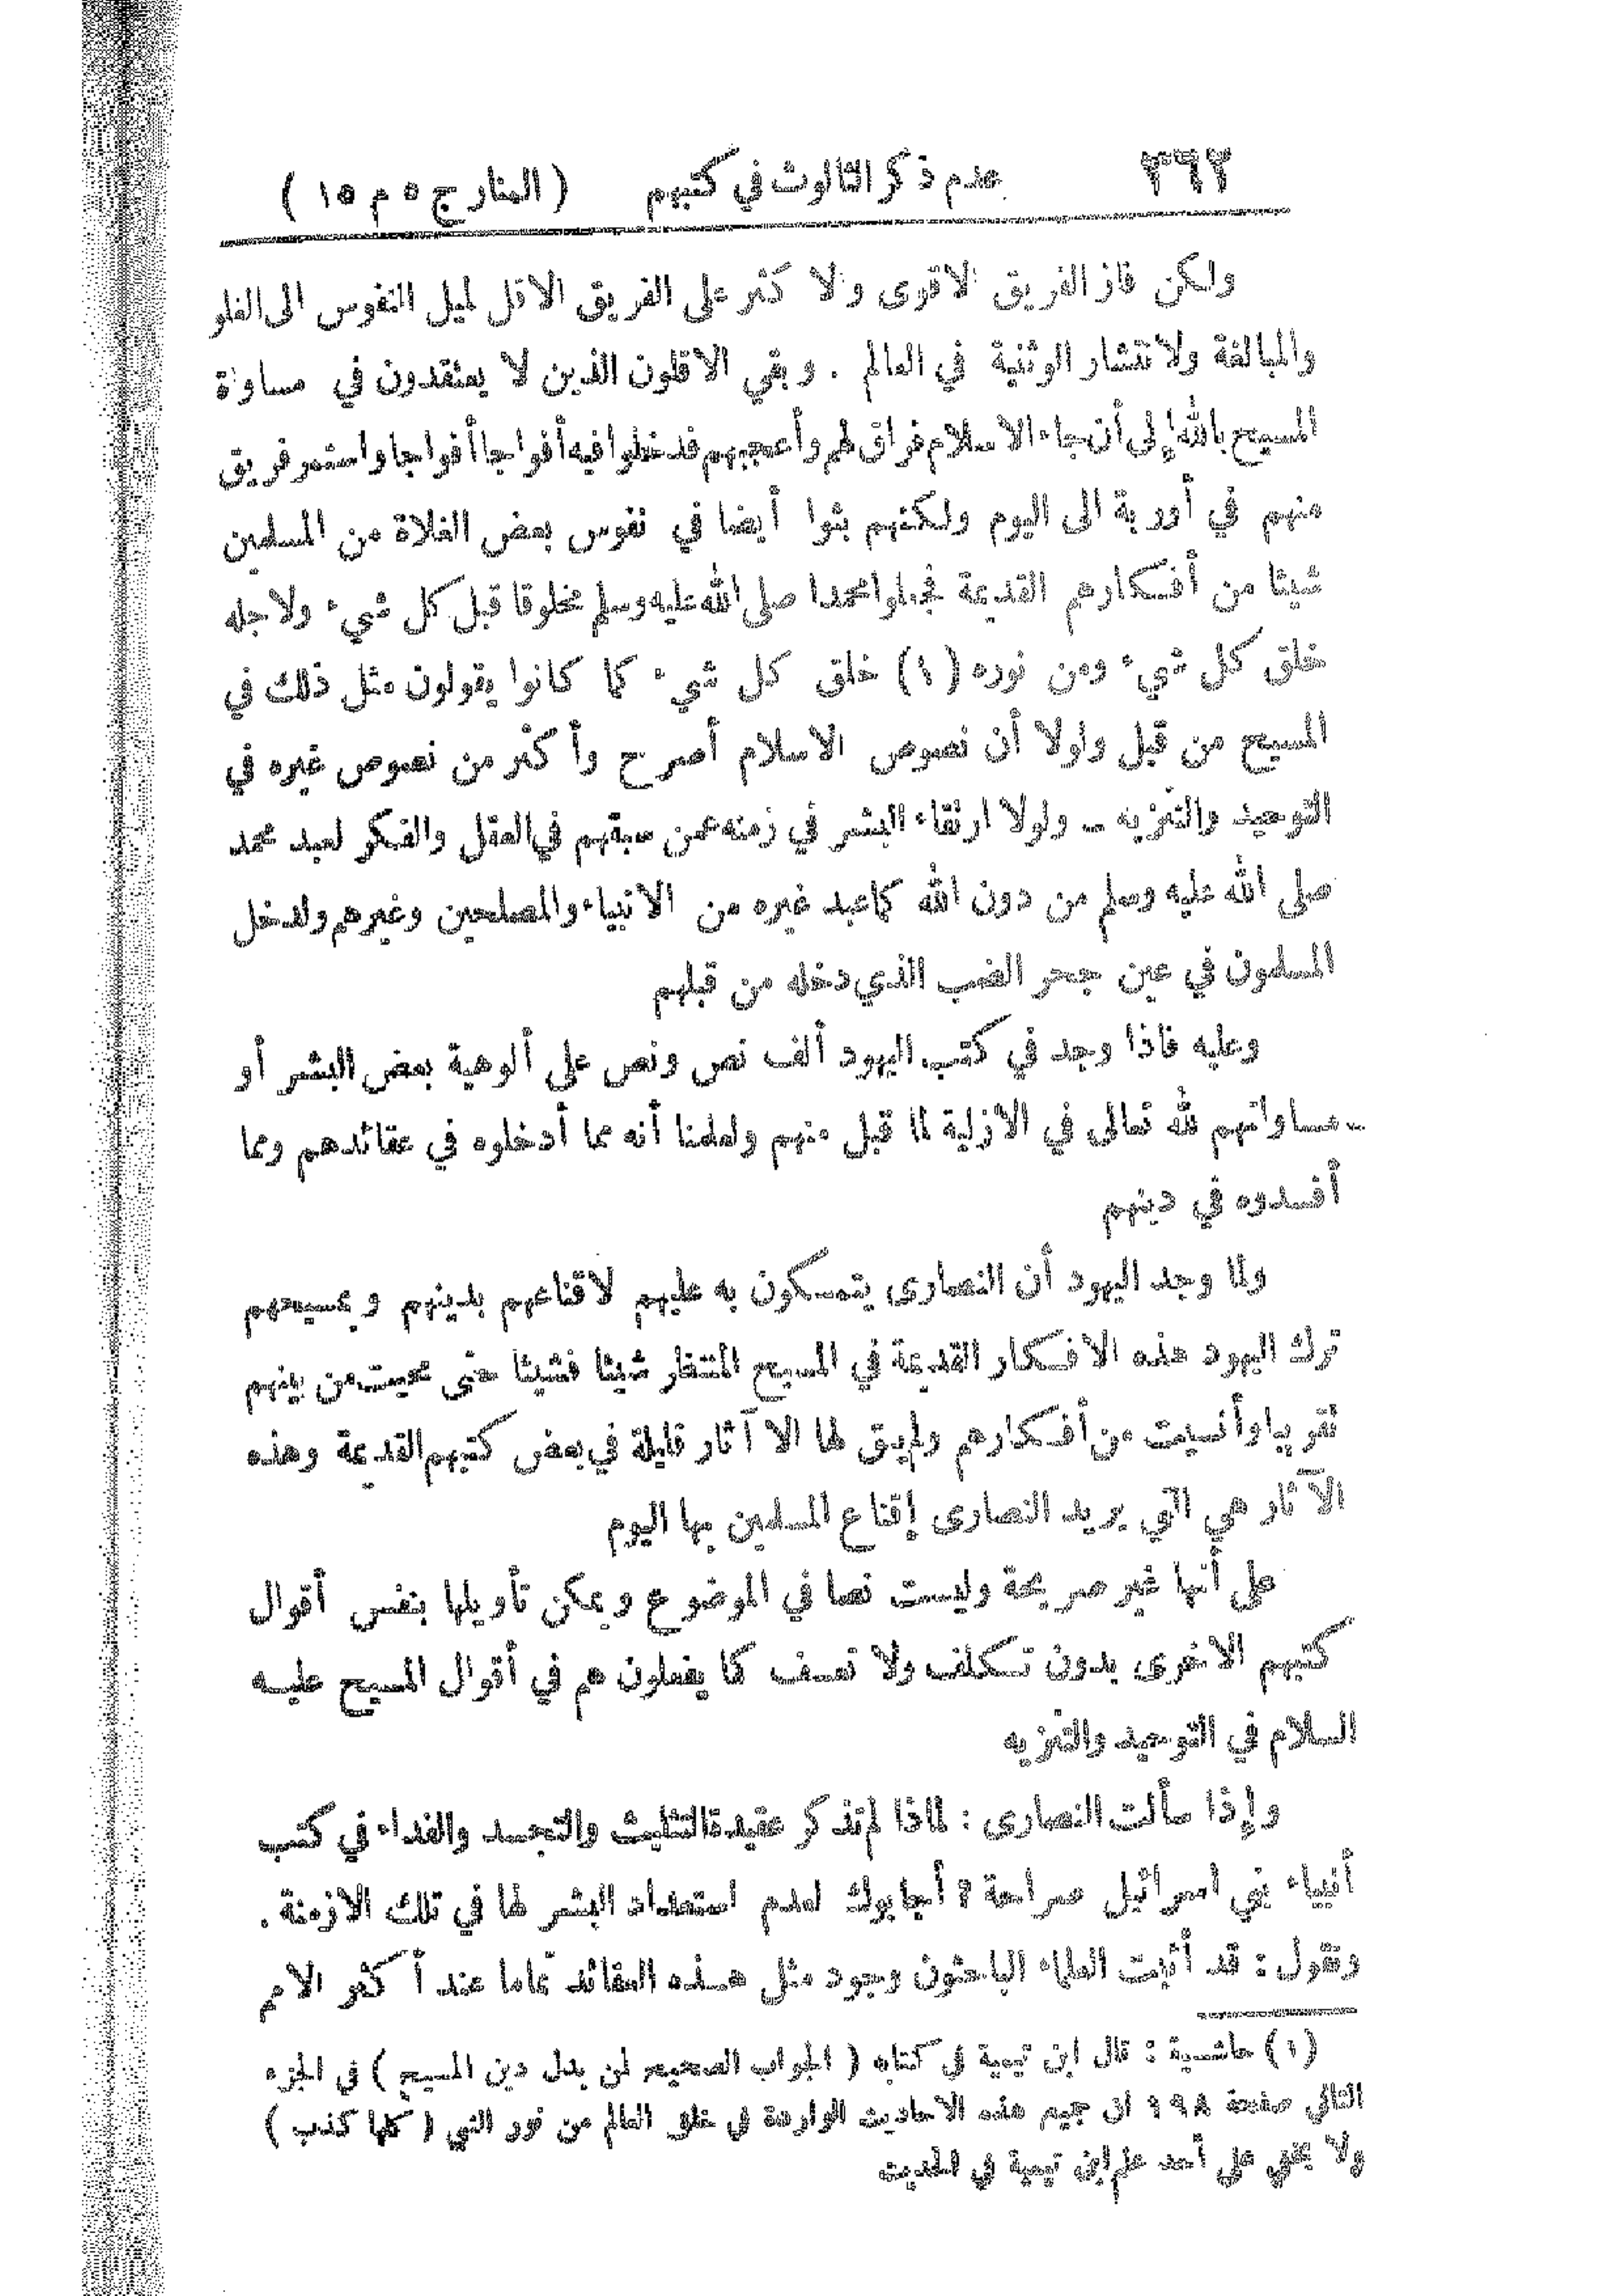 ٣٦٢ عدم ذكر الثالوث في كتبهم ( المنار ج ٥ م ١٥ )
ولكن فاز الفريق الاقوى والاكثر على الفريق الاقل لميل النفوس الى الغلو
والمبالغة ولانتشار الوثنية في العالم . وبقي الاقلون الذين لا يعتقدون في مساواة
المسيح بالله إلى أن جاء الاسلام فراق لهم وأعجبهم فدخلوا فيه أفواجا أفواجا واستمر فريق
منهم في أوربة الى اليوم ولكنهم بثوا أيضا في نفوس بعض الغلاة من المسلمين
شيئا من أفكارهم القديمة فجعلوا محمدا صلى الله عليه وسلم مخلوقا قبل كل شيء ولاجله
خلق كل شيء ومن نوره (١) خلق كل شيء كما كانوا يقولون مثل ذلك في
المسيح من قبل ولولا أن نصوص الاسلام أصرح وأكثر من نصوص غيره في
التوحيد والتنزيه ــ ولولا ارتقاء البشر في زمنه عمن سبقهم في العقل والفكر لعبد محمد
صلى الله عليه وسلم من دون الله كما عبد غيره من الانبياء والمصلحين وغيرهم ولدخل
المسلمون في عين جحر الضب الذي دخله من قبلهم
وعليه فاذا وجد في كتب اليهود ألف نص ونص على ألوهية بعض البشر أو
مساواتهم لله تعالى في الازلية لما قبل منهم ولعلمنا أنه مما أدخلوه في عقائدهم ومما
أفسدوه في دينهم
ولما وجد اليهود أن النصارى يتمسكون به عليهم لاقناعهم بدينهم وبمسيحهم
ترك اليهود هذه الافكار القديمة في المسيح المنتظر شيئا فشيئا حتى محيت من بينهم
تقريبا وأنسيت من أفكارهم ولم يبق لها الا آثار قليلة في بعض كتبهم القديمة وهذه
الآثار هي التي يريد النصارى إقناع المسلمين بها اليوم
على أنها غير صريحة وليست نصا في الموضوع ويمكن تأويلها بنفس أقوال
كتبهم الاخرى بدون تكلف ولا تعسف كما يفعلون هم في أقوال المسيح عليه
السلام في التوحيد والتنزيه
وإذا سألت النصارى : لماذا لم تذكر عقيدة التثليث والتجسد والفداء في كتب
أنبياء بني اسرائيل صراحة ؟ أجابوك لعدم استعداد البشر لها في تلك الازمنة .
ونقول : قد أثبت العلماء الباحثون وجود مثل هذه العقائد تماما عند أكثر الامم
(١) حاشية : قال ابن تيمية في كتابه ( الجواب الصحيح لمن بدل دين المسيح ) في الجزء
الثاني صفحة ١٩٨ ان جميع هذه الاحاديث الواردة في خلق العالم من نور النبي ( كلها كذب )
ولا يخفى على أحد علم ابن تيمية في الحديث